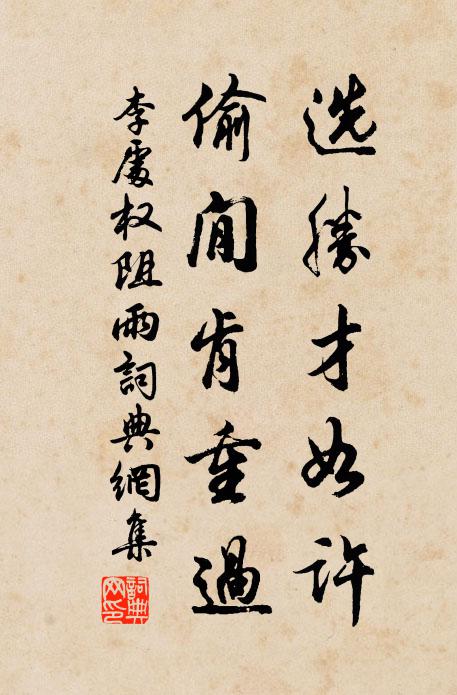 选勝才如许
偷閒肯重過
李處权阻雨詞典網集
詞典网印